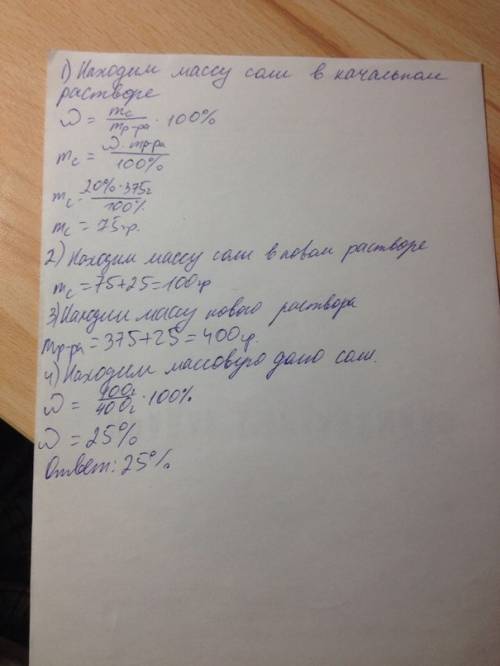 1) Находим массу соли в начальном
растворе
ω = mc/mр-ра · 100%
mc = ω · mр-ра/100%
mc = 20% · 375г/100%
mc = 75гр.
2) Находим массу соли в новом растворе
mc = 75+25 = 100гр
3) Находим массу нового раствора
mр-ра = 375+25 = 400гр.
4) Находим массовую долю соли.
ω = 100г/400г · 100%
ω = 25%
Ответ: 25%